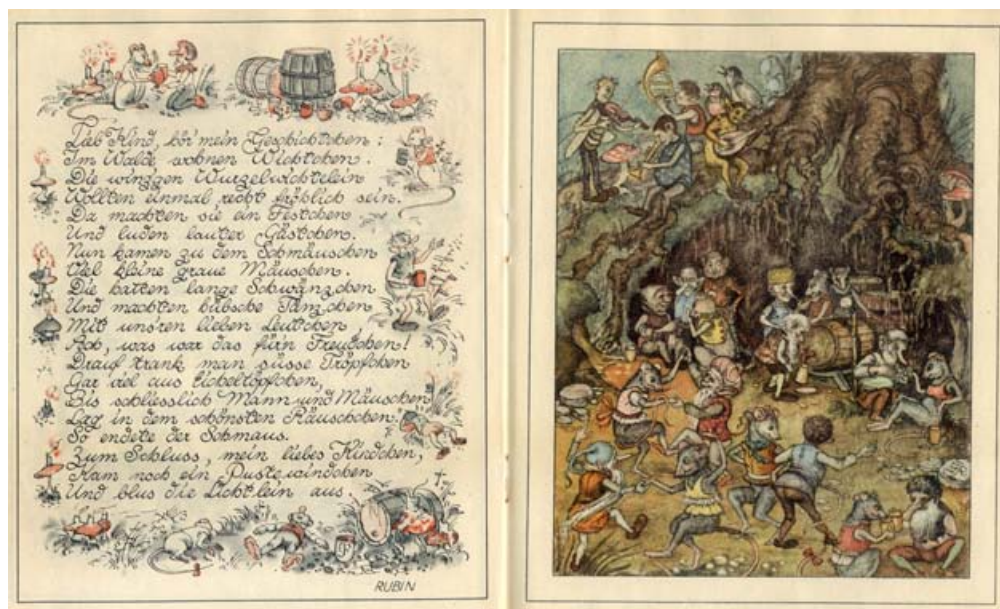 Lieb Kind, hör' mein Geschichtchen:
Im Walde wohnen Wichtchen.
Die winz'gen Wurzelwichtelein
Wollten einmal recht fröhlich sein.
Da machten sie ein Festchen
Und luden lauter Gästchen.
Nun kamen zu dem Schmäuschen
Viel kleine graue Mäuschen.
Die hatten lange Schwänzchen
Und machten hübsche Tänzchen
Mit uns'ren lieben Leutchen,
Ach, was war das für'n Freudchen!
Drauf trank man süsse Tröpfchen
Gar viel aus Eicheltöpfchen,
Bis schliesslich Mann und Mäuschen
Lag in dem schönsten Räuschchen.
So endete der Schmaus.
Zum Schluss, mein liebes Kindchen,
Kam noch ein Pustewindchen
Und blus die Lichtlein aus.
RUBIN